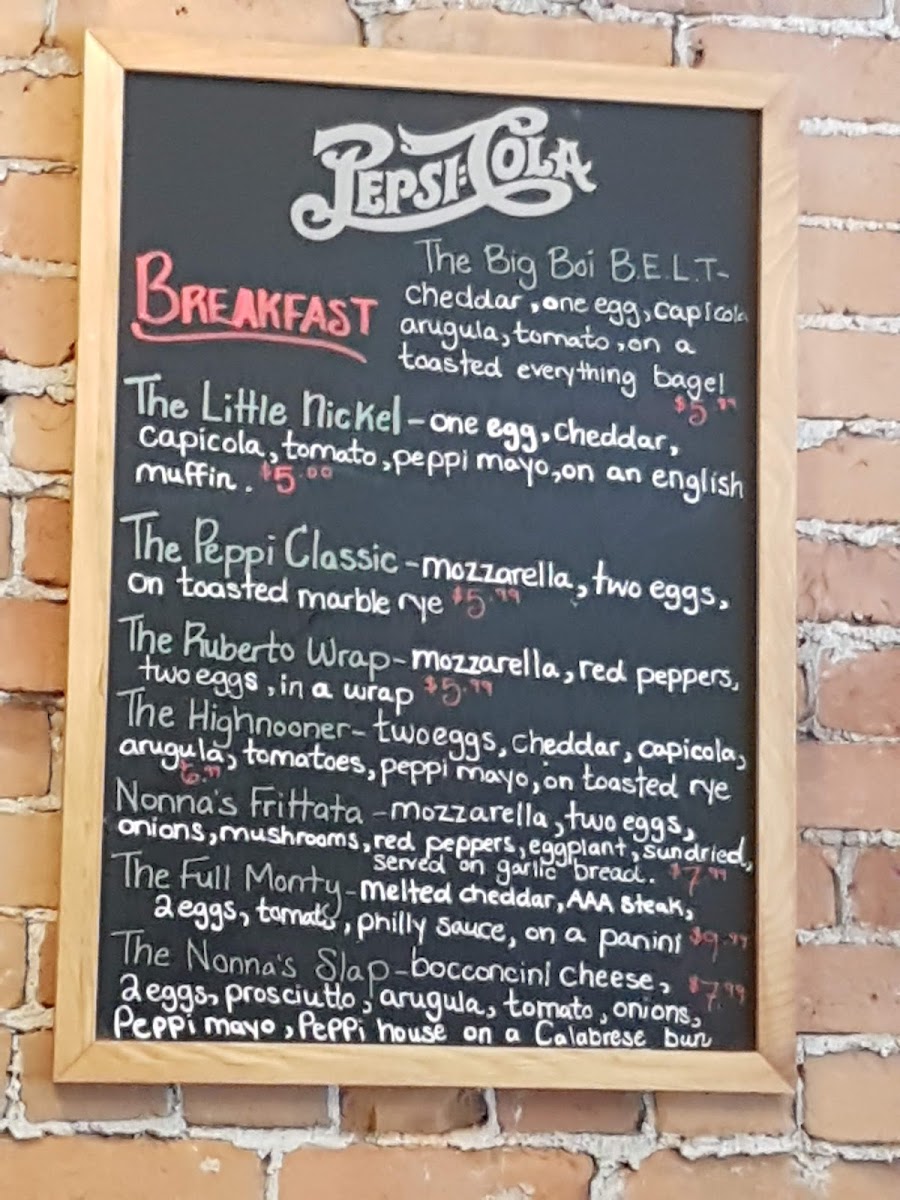 PEPSI:COLA
BREAKFAST
The Big Boi B.E.L.T-
cheddar, one egg, capicola
arugula, tomato, on a
toasted everything bagel
$5.99
The Little Nickel - one egg, cheddar,
capicola, tomato, peppi mayo, on an english
muffin. $5.00
The Peppi Classic - mozzarella, two eggs,
on toasted marble rye $5.99
The Ruberto Wrap - mozzarella, red peppers,
two eggs, in a wrap $5.99
The Highnooner - two eggs, cheddar, capicola,
arugula, tomatoes, peppi mayo, on toasted rye
$6.99
Nonna's Frittata - mozzarella, two eggs,
onions, mushrooms, red peppers, eggplant, sundried,
served on garlic bread. $7.99
The Full Monty - melted cheddar, AAA steak,
2 eggs, tomato, philly sauce, on a panini $9.99
The Nonna's Slap - bocconcini cheese, $7.99
2 eggs, prosciutto, arugula, tomato, onions,
Peppi mayo, Peppi house on a Calabrese bun